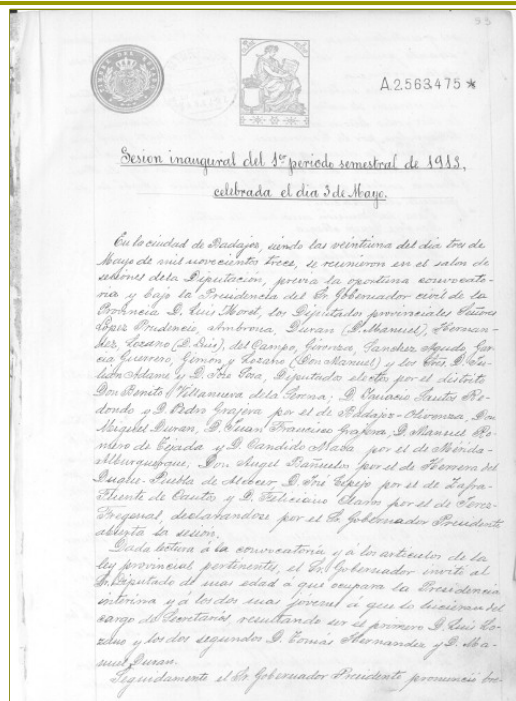 93
A.2563475 *
Sesion inaugural del 1er periodo semestral de 1913,
celebrada el dia 3 de Mayo.
En la ciudad de Badajoz, siendo las veintiuna del dia tres de
Mayo de mil novecientos trece, se reunieron en el salon de
sesiones dela Diputación, previa la oportuna convocato-
ria y bajo la Presidencia del Sr. Gobernador civil de la
Provincia D. Luis Morel, los Diputados provinciales Señores
López Prudencio, Ambrona, Duran (D. Manuel), Hernan-
dez, Lozano (D. Luis), del Campo, Gironza, Sanchez Agudo, Gar-
cia Guerrero, Gimon y Lozano (Don Manuel) y los Sres. D. Ju-
lián Adame y D. José Sosa, Diputados electos por el distrito
Don Benito Villanueva dela Serena; D. Ignacio Santos Re-
dondo y D. Pedro Grajera por el de Badajoz-Olivenza, Don
Miguel Duran, D. Juan Francisco Grajera, D. Manuel Ro-
mero de Tejada y D. Candido Maza por el de Mérida-
Alburquerque, Don Angel Bañuelos por el de Herrera del
Duque-Puebla de Alcocer, D. José Espejo por el de Zafra-
Fuente de Cantos y D. Feliciano Claros por el de Jerez-
Fregenal, declarandose por el Sr. Gobernador Presidente
abierta la sesion.
Dada lectura á la convocatoria y á los articulos de la
ley provincial pertinentes, el Sr. Gobernador invitó al
Sr. Diputado de mas edad á que ocupara la Presidencia
interina y á los dos mas jóvenes á que lo hicieran del
cargo de Secretarios, resultando ser el primero D. Luis Lo-
zano y los dos segundos D. Tomás Hernandez y D. Ma-
nuel Duran.
Seguidamente el Sr. Gobernador Presidente pronunció bre-